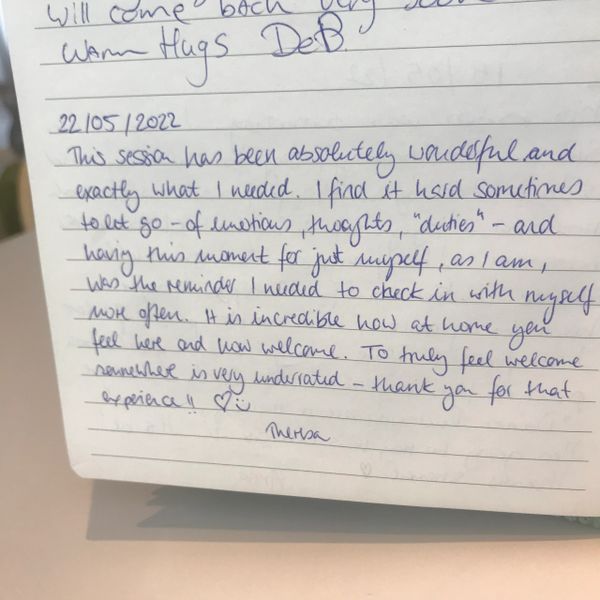 will come back very soon
Warm Hugs DeB
22/05/2022
This session has been absolutely wonderful and
exactly what I needed. I find it hard sometimes
to let go - of emotions, thoughts, "duties" - and
having this moment for just myself, as I am,
was the reminder I needed to check in with myself
more often. It is incredible how at home you
feel here and how welcome. To truly feel welcome
somewhere is very underrated - thank you for that
experience!! ♡
Theresa